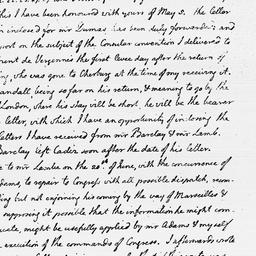 this I have been honoured with yours of May 3. the letter
inclosed for mr Dumas has been duly forwarded and
report on the subject of the Consular convention I delivered to
Count de Vergennes the first levee day after the return of
who was gone to Cherburg at the time of my receiving it.
Randall being so far on his return, & meaning to go by the
London, where his stay will be short, he will be the bearer
letter, with which I have an opportunity of inclosing the
letters I have received from mr Barclay & mr Lamb.
Barclay left Cadiz soon after the date of his letter.
to mr Lambe on the 20th of June, with the concurrence of
Adams, to repair to Congress with all possible dispatch, recom-
but not enjoining his coming by the way of Marseilles &
supposing it possible that the information he might com-
municate, might be usefully applied by mr Adams & myself
execution of the commands of Congress. I afterwards wrote